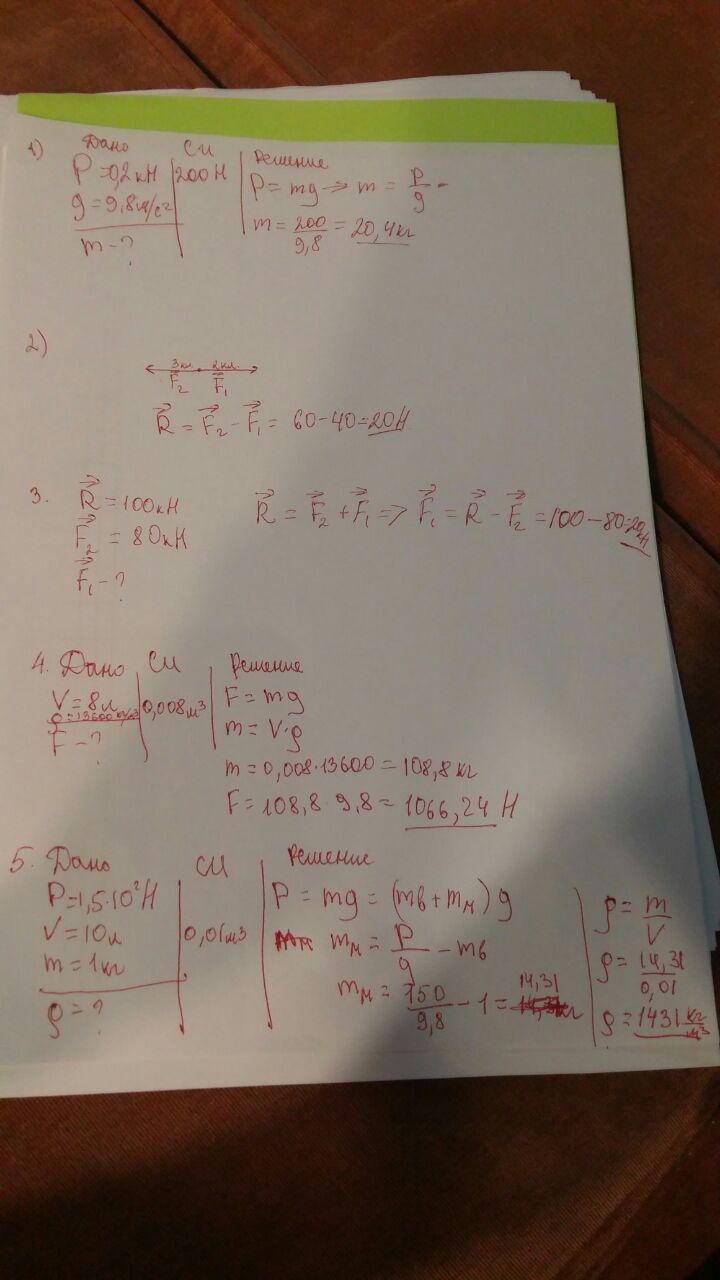 1) Дано СИ Решение
P = 0,2 кН 200 Н P = mg => m = P/g
g = 9,8 м/с² m = 200/9,8 = 20,4 кг
m - ?
2)
3 кл. 2 кл.
F₂ F₁
R = F₂ - F₁ = 60 - 40 = 20 Н
3. R = 100 кН R = F₂ + F₁ => F₁ = R - F₂ = 100 - 80 = 20 кН
F₂ = 80 кН
F₁ - ?
4. Дано СИ Решение
V = 8 л 0,008 м³ F = mg
ρ = 13600 кг/м³ m = V·ρ
F - ?
m = 0,008·13600 = 108,8 кг
F = 108,8·9,8 = 1066,24 Н
5. Дано СИ Решение
P = 1,5·10² Н P = mg = (mв + mм) g ρ = m/V
V = 10 л 0,01 м³ mм = P/g - mв ρ = 14,31/0,01
m = 1 кг mм = 150/9,8 - 1 = 14,31 кг ρ = 1431 кг/м³
ρ = ?